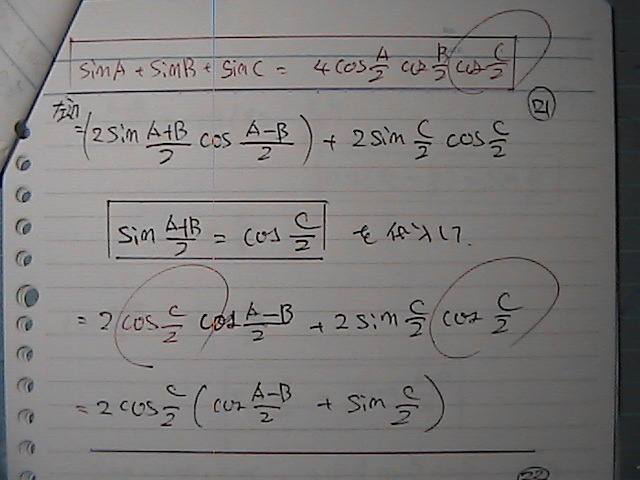 sinA + sinB + sinC = 4cos A/2 cos B/2 cos C/2
21
左辺
= (2sin (A+B)/2 cos (A-B)/2) + 2sin C/2 cos C/2
sin (A+B)/2 = cos C/2 を代入して.
= 2 cos C/2 cos (A-B)/2 + 2sin C/2 cos C/2
= 2cos C/2 (cos (A-B)/2 + sin C/2)
22